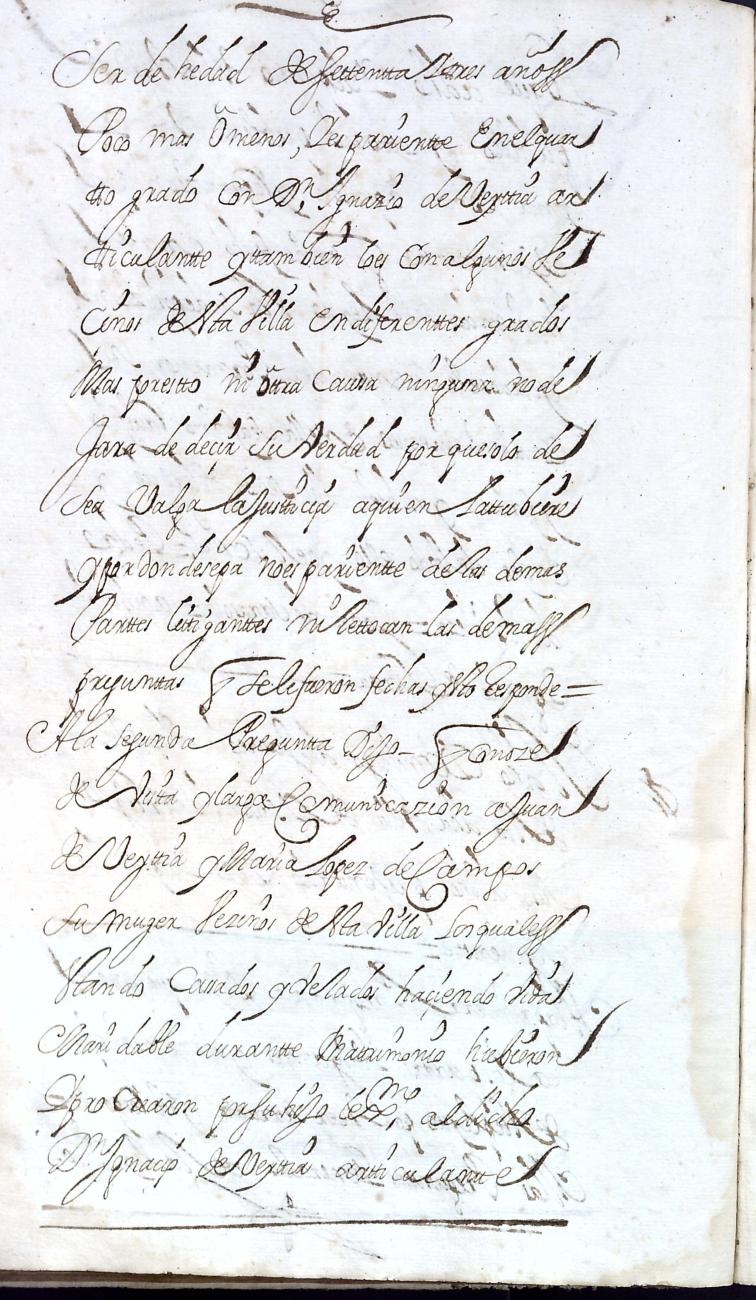 Ser de hedad de settentta Ytres años
Poco mas O menos, Yes parientte Enelquar
tto grado Con Dn. Ignazio de Veyttia ar
tticulantte y tambien loes Con algunos Ve
cinos de Vta Villa en diferenttes grados
Mas por estto ni ôtra Causa ninguna no de
Jara de decir su Verdad por que solo de
sea Valga la Justticia aquien La ttubiere
y por donde sepa no es parientte de las demas
Parttes litiganttes ni le ttocan las demas
preguntas q se le fueron fechas y Esto Responde =
A la Segunda Pregunta Dijo - q Conoze
de Vista y larga Comunicazion a Juan
de Veyttia y Maria Lopez de Campos
su muger Vezinos de Vta Villa Los quales
Stando Casados y Velados haciendo vida
Maridable durantte Matrimonio hubieron
Y procrearon por su hijo lexmo. al dicho
Dn Ignacio de Veyttia articulantte